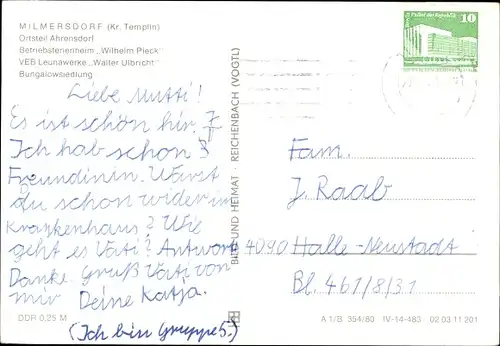 MILMERSDORF (Kr. Templin)
Ortsteil Ahrensdorf
Betriebsferienheim „Wilhelm Pieck"
VEB Leunawerke „Walter Ulbricht"
Bungalowsiedlung
Liebe Mutti!
Es ist schön hir.
Ich hab schon 3
Freundinin. Warst
du schon wider in
Krankenhaus? Wie
geht es Vati? Antwort
Danke. Gruß Vati von
mir Deine Katja.
(Ich bin Gruppe 5.)
DDR 0,25 M
BILD UND HEIMAT · REICHENBACH (VOGTL)
Palast der Republik 10
Fam.
J. Raab
4090 Halle-Neustadt
Bl. 461/8/31
A 1/B 354/80 IV-14-483 02 03 11 201